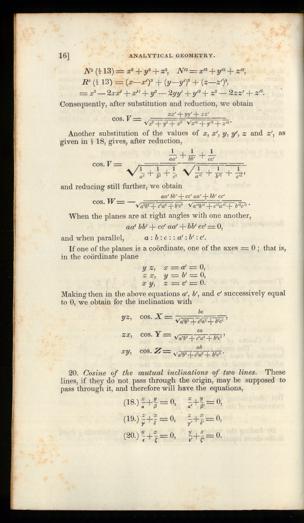 16] ANALYTICAL GEOMETRY.
N² (§ 13) = x² + y² + z², N'² = x'² + y'² + z'²,
R² (§ 13) = (x—x')² + (y—y')² + (z—z')²,
= x² — 2xx' + x'² + y² — 2yy' + y'² + z² — 2zz' + z'².
Consequently, after substitution and reduction, we obtain
cos. V = (xx' + yy' + zz') / (√x² + y² + z² √x'² + y'² + z'²).
Another substitution of the values of x, x', y, y', z and z', as
given in § 18, gives, after reduction,
cos. V = (1/aa' + 1/bb' + 1/cc') / (√1/a² + 1/b² + 1/c² √1/a'² + 1/b'² + 1/c'²),
and reducing still further, we obtain
cos. W = (aa' bb' + cc' aa' + bb' cc') / (√a²b² + c²a² + b²c² √a'²b'² + c'²a'² + b'²c'²).
When the planes are at right angles with one another,
aa' bb' + cc' aa' + bb' cc' = 0,
and when parallel, a : b : c : : a' : b' : c'.
If one of the planes is a coördinate, one of the axes = 0 ; that is,
in the coördinate plane
y z, x = a' = 0,
z x, y = b' = 0,
x y, z = c' = 0.
Making then in the above equations a', b', and c' successively equal
to 0, we obtain for the inclination with
yz, cos. X = bc / √a²b² + c²a² + b²c²,
zx, cos. Y = ca / √a²b² + c²a² + b²c²,
xy, cos. Z = ab / √a²b² + c²a² + b²c².
20. Cosine of the mutual inclinations of two lines. These
lines, if they do not pass through the origin, may be supposed to
pass through it, and therefore will have the equations,
(18.)
(19.)
(20.)